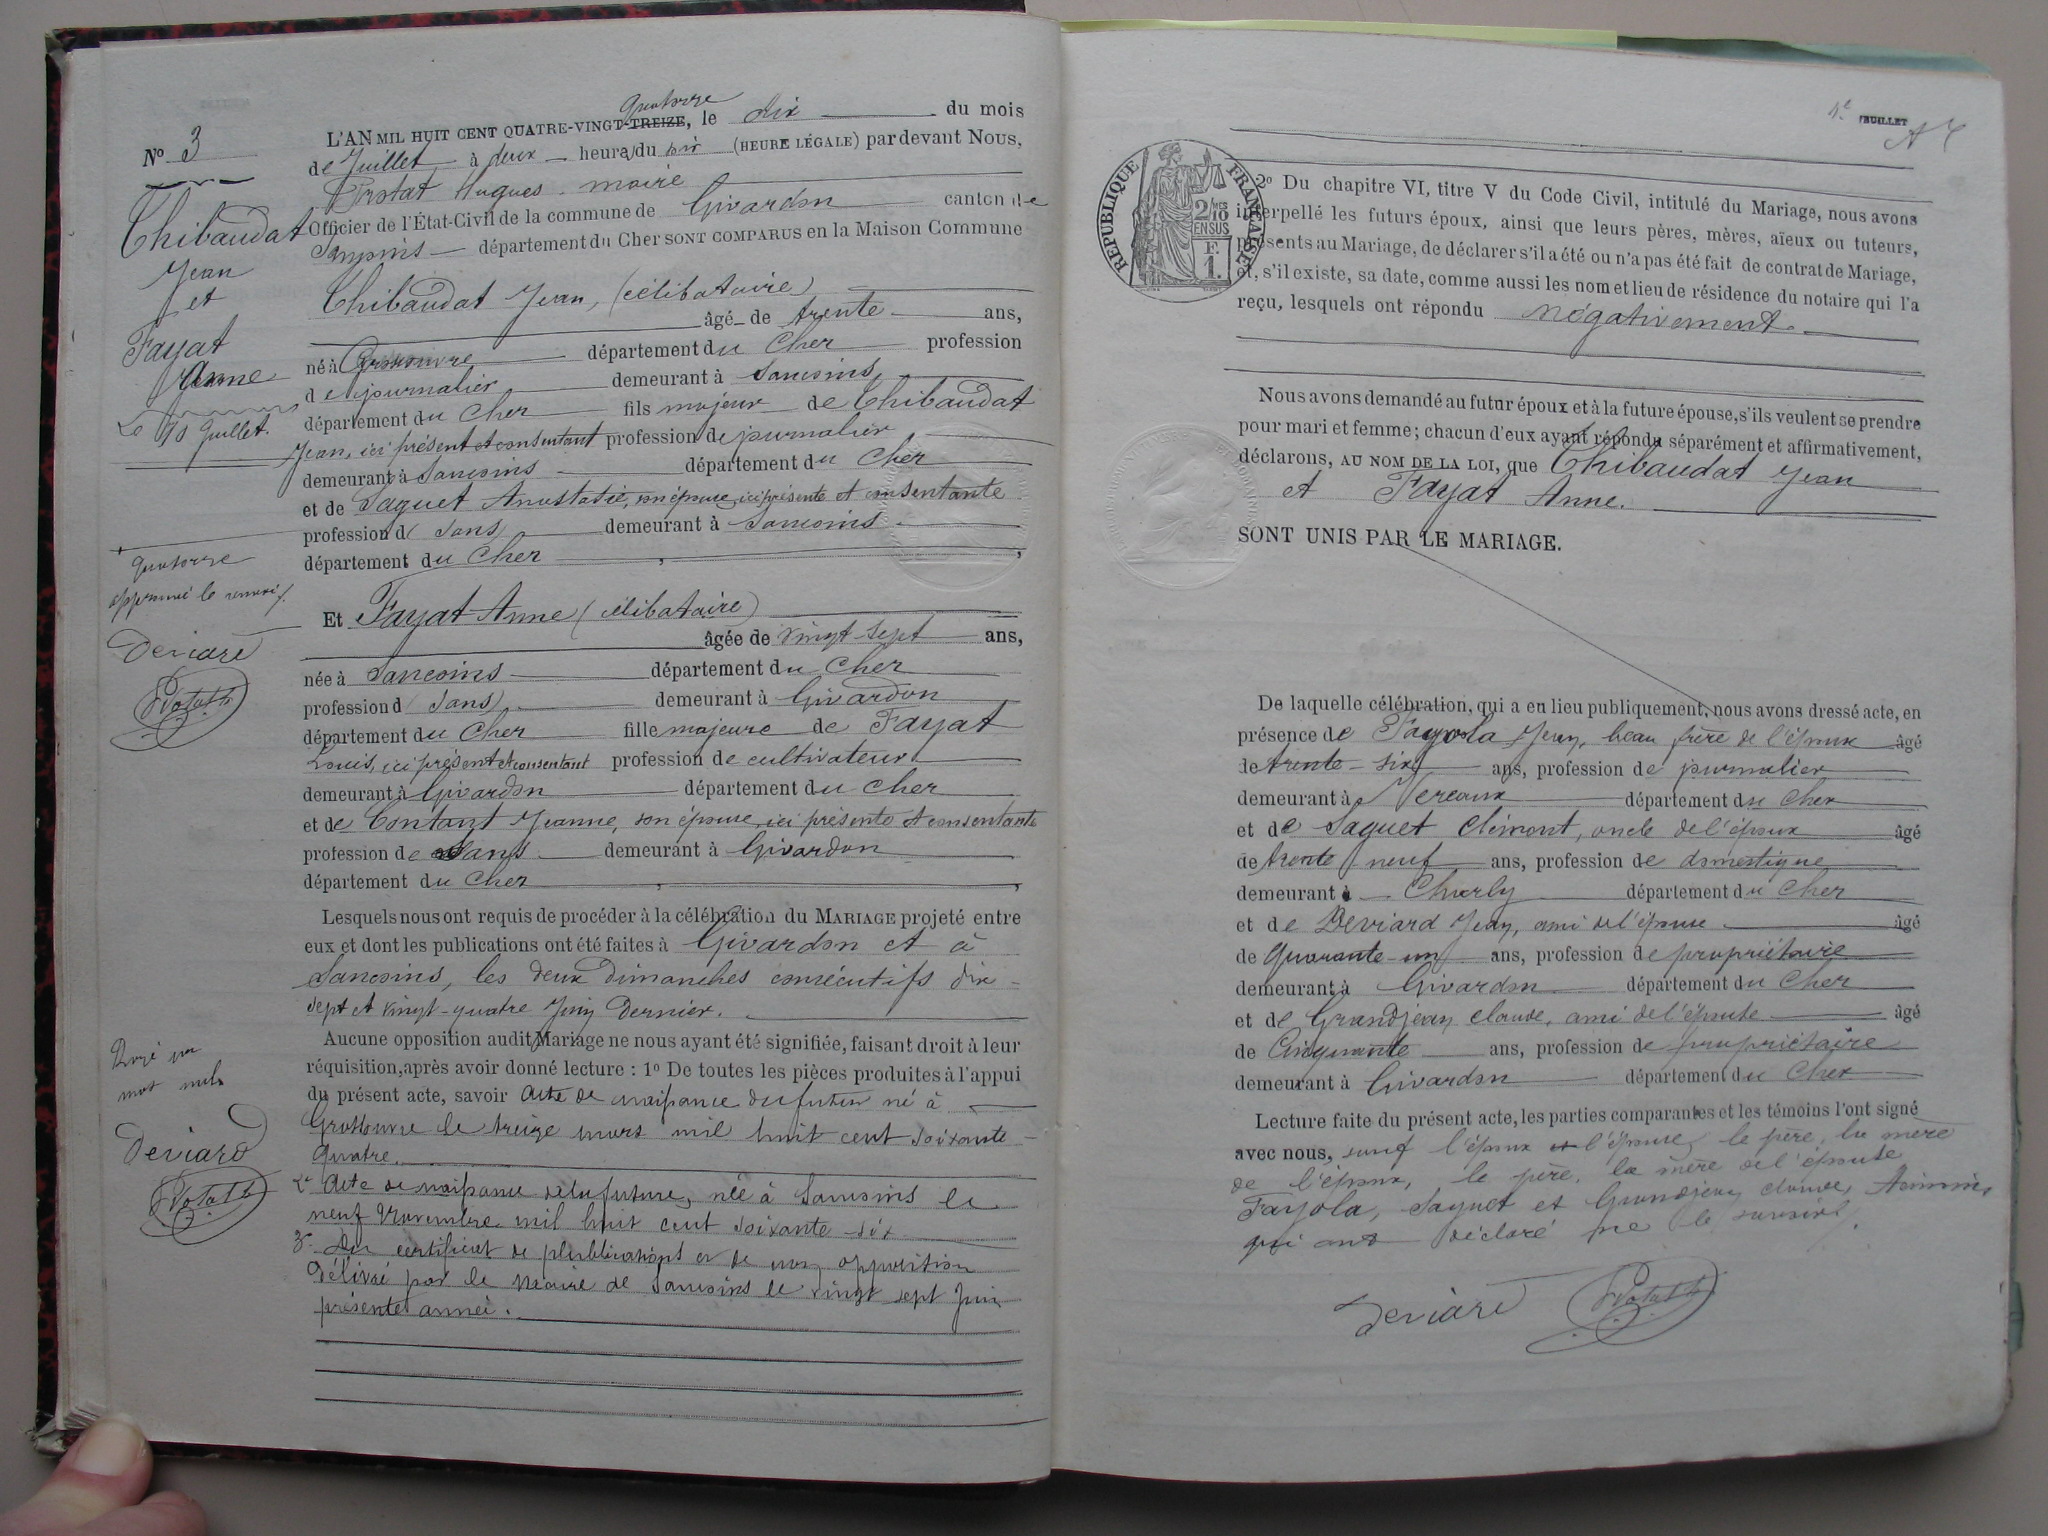 Quatorze
L'AN MIL HUIT CENT QUATRE-VINGT-TREIZE, le dix du mois
N° 3
de Juillet à deux heures du soir (HEURE LÉGALE) par devant Nous,
Hugues maire
Officier de l'État-Civil de la commune de Givardon canton de
Sancoins département du Cher SONT COMPARUS en la Maison Commune
Thibaudat
Jean
et
Fayat
Anne
Le 10 Juillet.
Thibaudat Jean, (célibataire)
âgé de trente ans,
né à Grossouvre département du Cher profession
de journalier demeurant à Sancoins,
département du Cher fils majeur de Thibaudat
Jean, ici présent et consentant profession de journalier
demeurant à Sancoins département du Cher
et de Saguet Anastasie, son épouse, ici présente et consentante
profession d (sans) demeurant à Sancoins
département du Cher
Quatorze
approuvé le renvoi
Deviard
Et Fayat Anne (célibataire)
âgée de vingt-sept ans,
née à Sancoins département du Cher
profession d (sans) demeurant à Givardon
département du Cher fille majeure de Fayat
Louis, ici présent et consentant profession de cultivateur
demeurant à Givardon département du Cher
et de Contant Jeanne, son épouse, ici présente et consentante
profession de sans demeurant à Givardon
département du Cher
Lesquels nous ont requis de procéder à la célébration du MARIAGE projeté entre
eux et dont les publications ont été faites à Givardon et à
Sancoins, les deux Dimanches consécutifs dix-
sept et vingt-quatre Juin dernier.
Aucune opposition audit Mariage ne nous ayant été signifiée, faisant droit à leur
réquisition, après avoir donné lecture : 1° De toutes les pièces produites à l'appui
du présent acte, savoir Acte de naissance du futur né à
Grossouvre le treize mars mil huit cent soixante-
quatre.
2° Acte de naissance de la future, née à Sancoins le
neuf Novembre mil huit cent soixante-six
3° Du certificat de publications et de non opposition
délivré par le Maire de Sancoins le vingt sept Juin
présente année.
Rayé un
mot nul
Deviard
1e FEUILLET
RÉPUBLIQUE FRANÇAISE
2/10 EN SUS
F.
1.
2° Du chapitre VI, titre V du Code Civil, intitulé du Mariage, nous avons
interpellé les futurs époux, ainsi que leurs pères, mères, aïeux ou tuteurs,
présents au Mariage, de déclarer s'il a été ou n'a pas été fait de contrat de Mariage,
et, s'il existe, sa date, comme aussi les nom et lieu de résidence du notaire qui l'a
reçu, lesquels ont répondu négativement.
Nous avons demandé au futur époux et à la future épouse, s'ils veulent se prendre
pour mari et femme; chacun d'eux ayant répondu séparément et affirmativement,
déclarons, AU NOM DE LA LOI, que Thibaudat Jean
et Fayat Anne.
SONT UNIS PAR LE MARIAGE.
De laquelle célébration, qui a eu lieu publiquement, nous avons dressé acte, en
présence de Fayola Jean, beau frère de l'époux âgé
de trente-six ans, profession de journalier
demeurant à Vereaux département du Cher
et de Saguet Clément, oncle de l'époux âgé
de trente neuf ans, profession de domestique
demeurant à Charly département du Cher
et de Deviard Jean, ami de l'épouse âgé
de quarante-un ans, profession de propriétaire
demeurant à Givardon département du Cher
et de Grandjean Claude, ami de l'épouse âgé
de Cinquante ans, profession de propriétaire
demeurant à Givardon département du Cher
Lecture faite du présent acte, les parties comparantes et les témoins l'ont signé
avec nous, sauf l'époux et l'épouse, le père, la mère
de l'époux, le père, la mère de l'épouse
Fayola, Saguet et Grandjean Claude, témoins
qui ont déclaré ne le savoir.
Deviard